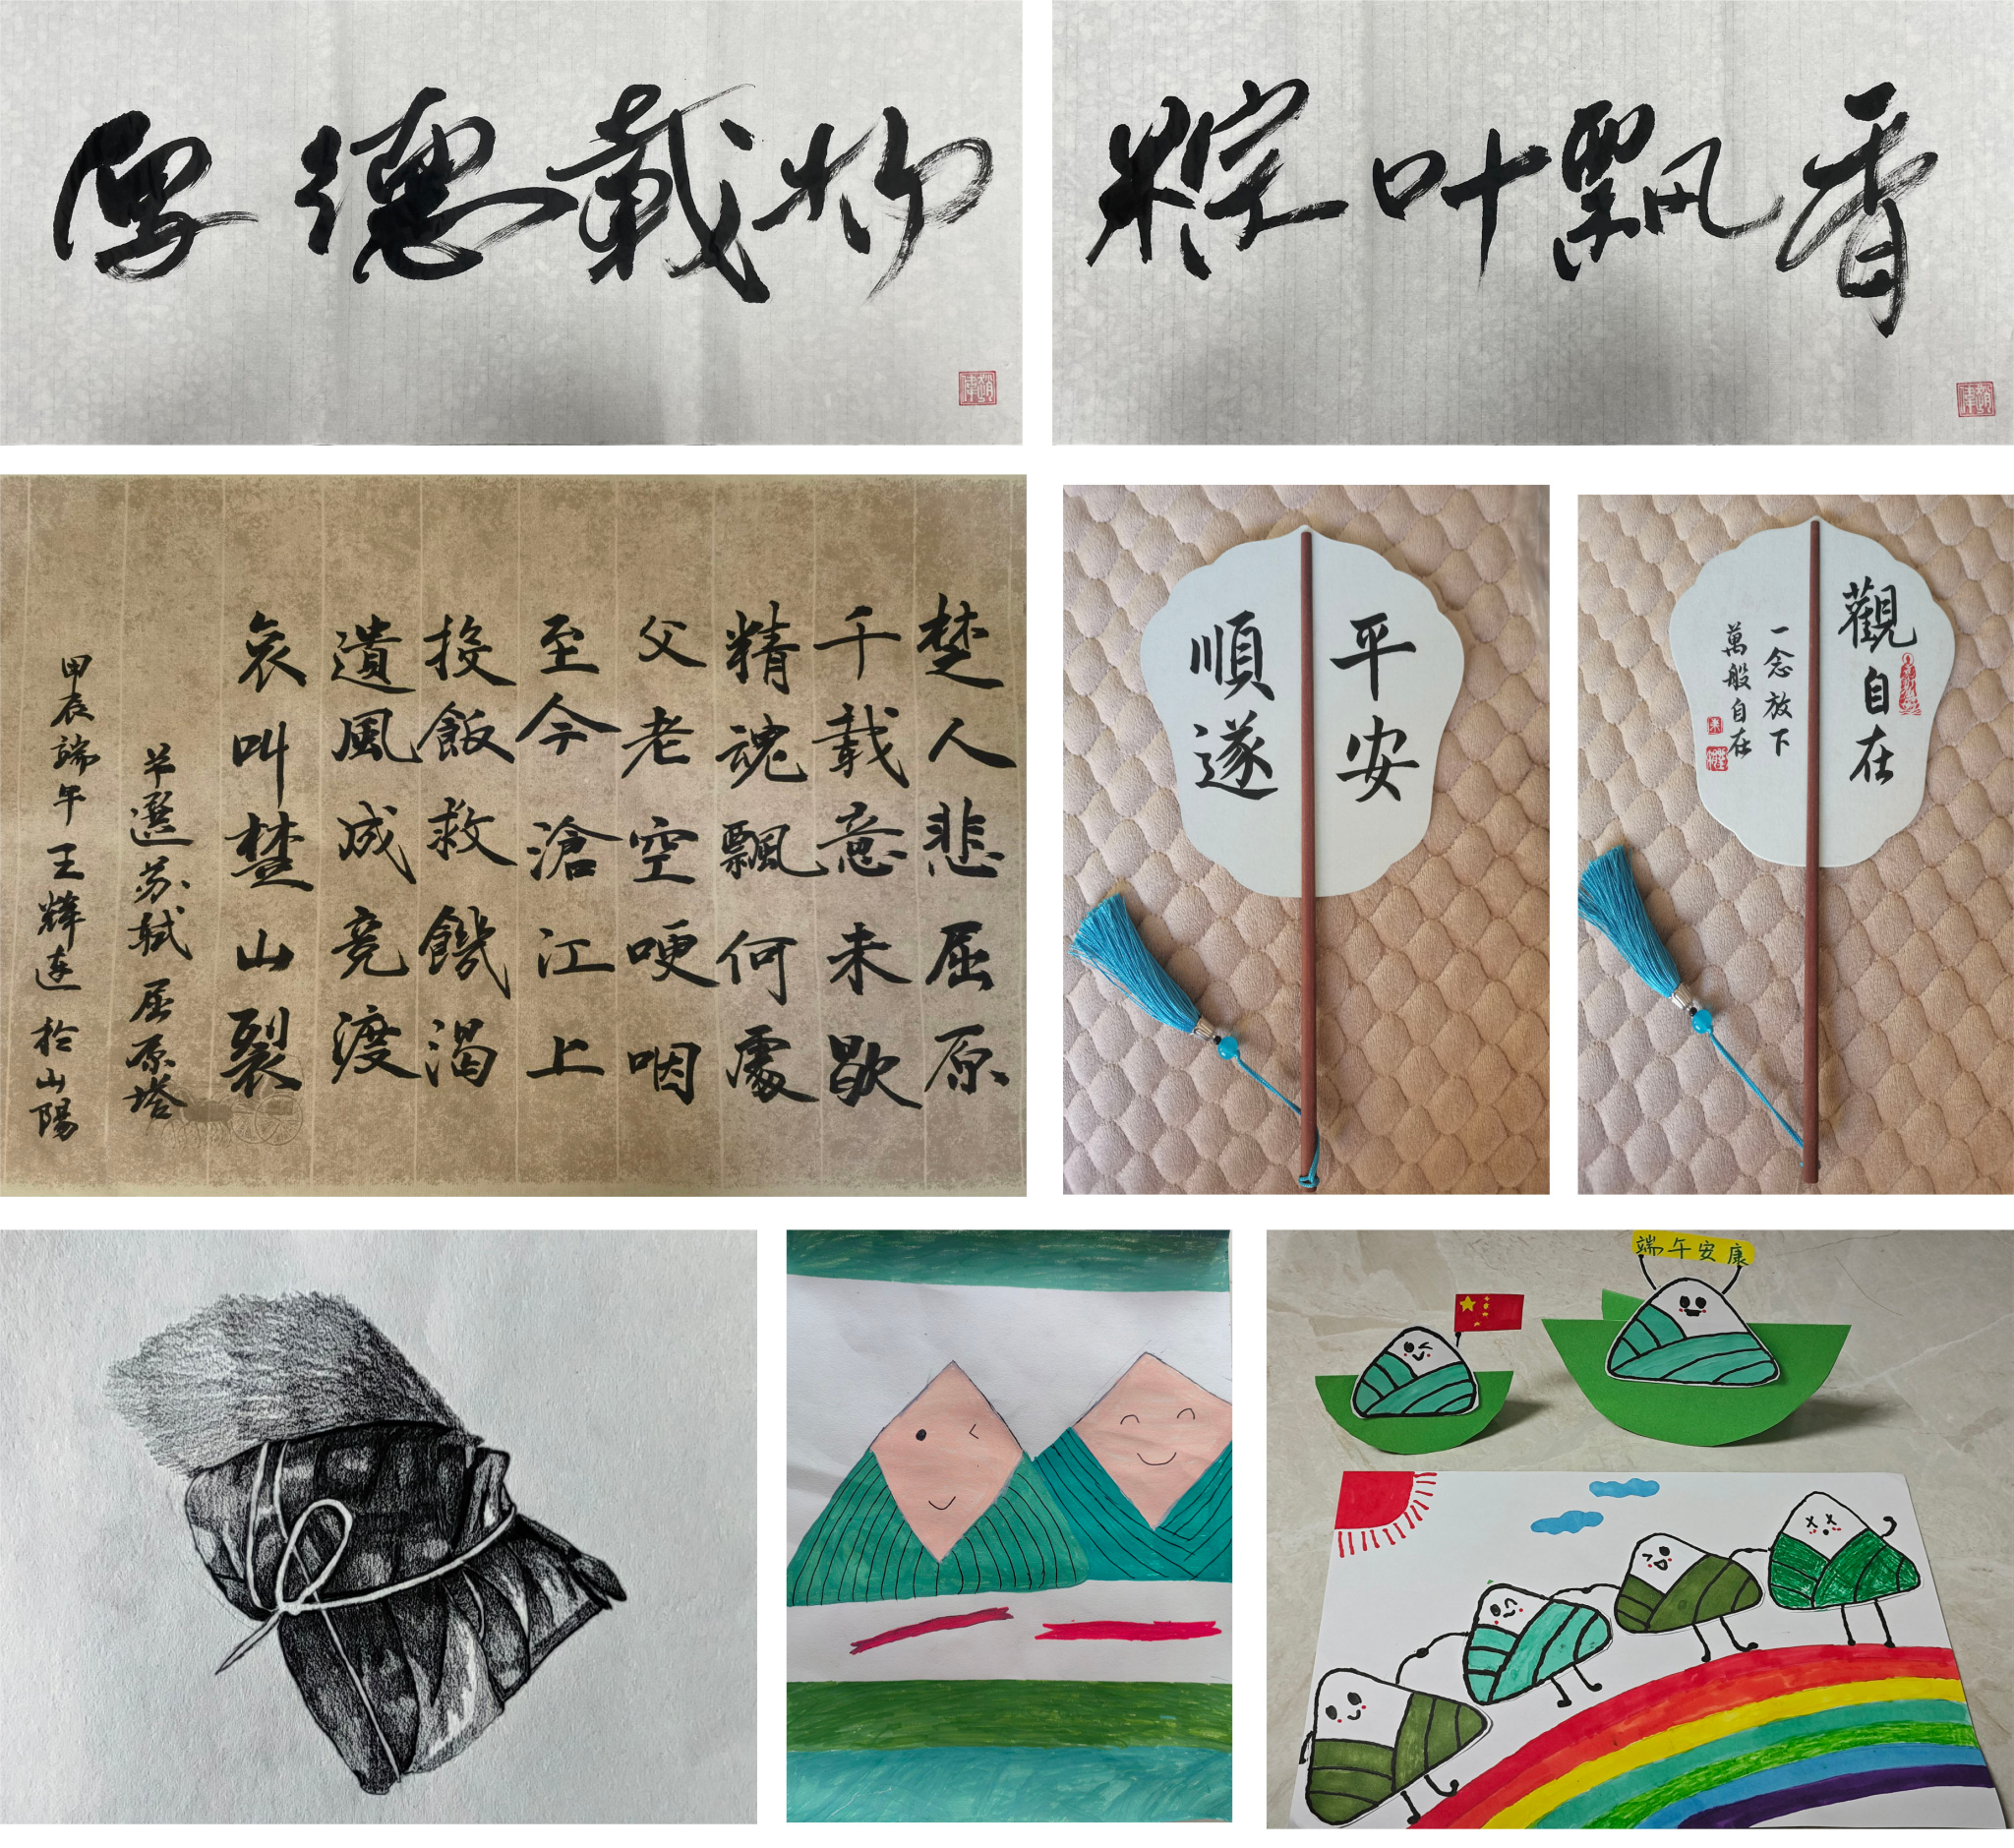 厚德載物
粽叶飄香
楚人悲屈原
千載意未歇
精魂飄何處
父老空哽咽
至今滄江上
投飯救饑渴
遺風成竞渡
哀叫楚山裂
节選苏軾屈原塔
甲辰端午王輝连於山陽
平安
順遂
觀自在
一念放下
萬般自在
端午安康